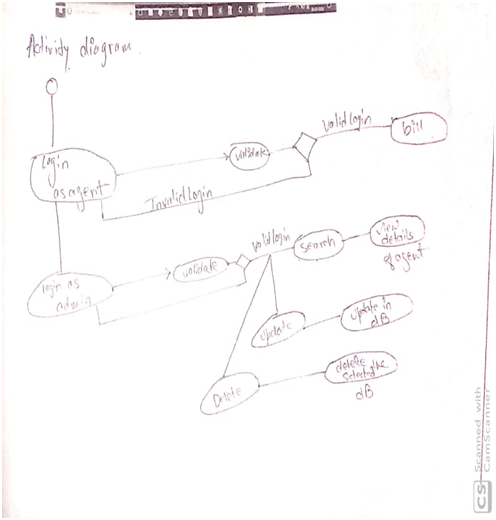 Activity diagram.
Login
as agent
validate
valid login
bill
Invalid login
login as
admin
validate
valid login
search
view
details
of agent
update
update in
dB
Delete
delete the
selected
dB
CS Scanned with
CamScanner